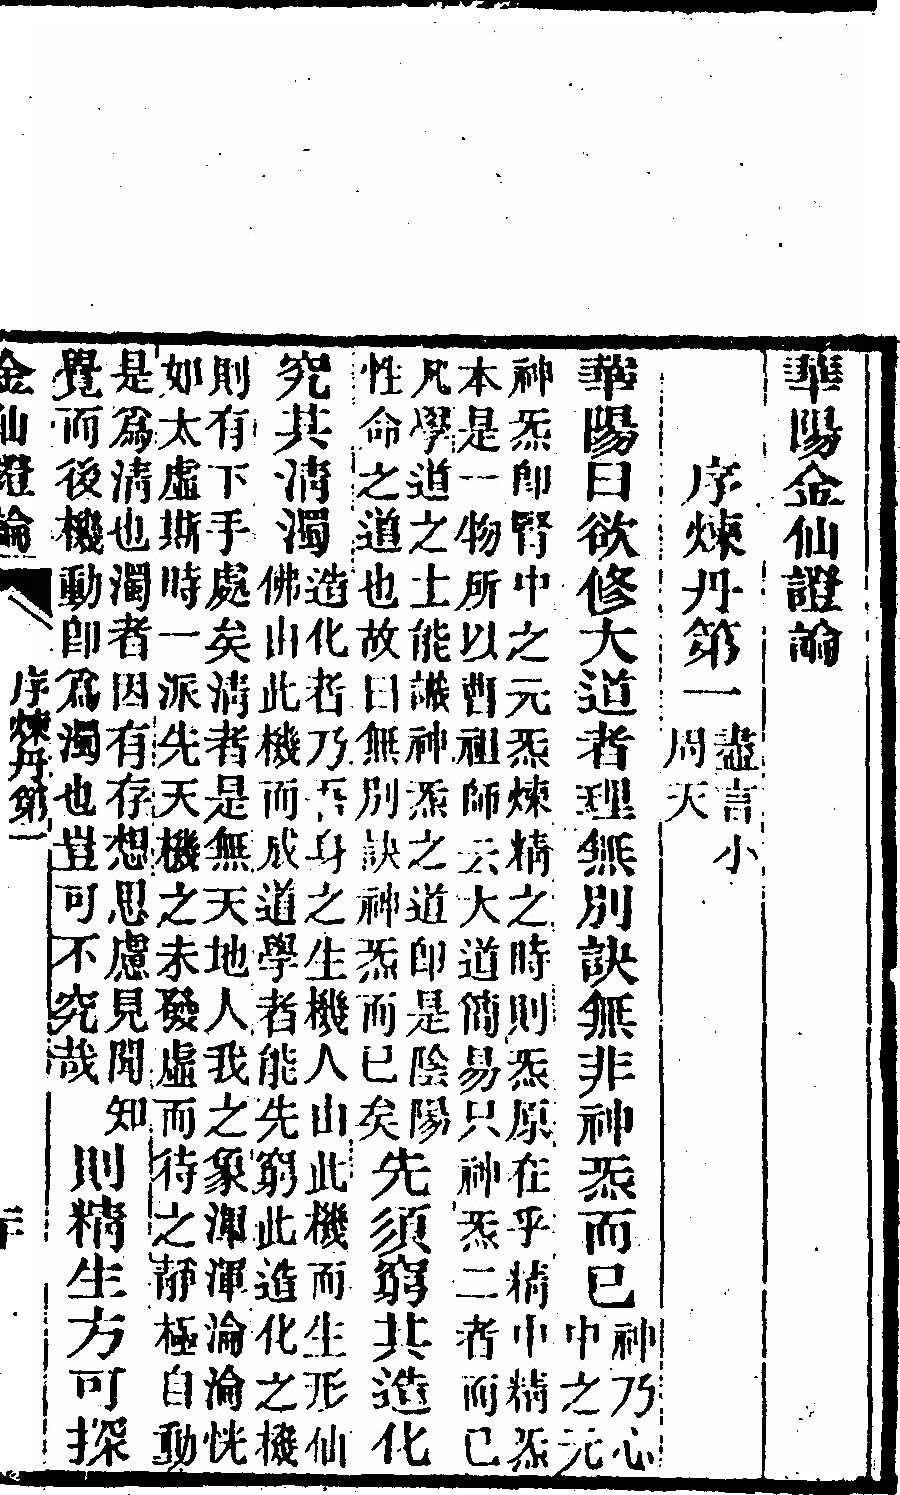 華陽金仙證論
序煉丹第一
盡言小
周天
華陽曰欲修大道者理無別訣無非神炁而已
神乃心
中之元
神炁卽腎中之元炁煉精之時則炁原在乎精中精炁
本是一物所以曹祖師云大道簡易只神炁二者而已
凡學道之士能識神炁之道卽是陰陽
性命之道也故曰無別訣神炁而已矣
先須窮其造化
究其清濁
造化者乃吾身之生機人由此機而生形仙
佛由此機而成道學者能先窮此造化之機
則有下手處矣清者是無天地人我之象渾渾淪淪恍
如太虛斯時一派先天機之未發虛而待之靜極自動
是爲清也濁者因有存想思慮見聞知
覺而後機動卽爲濁也豈可不究哉
則精生方可探
金仙證論
序煉丹第一